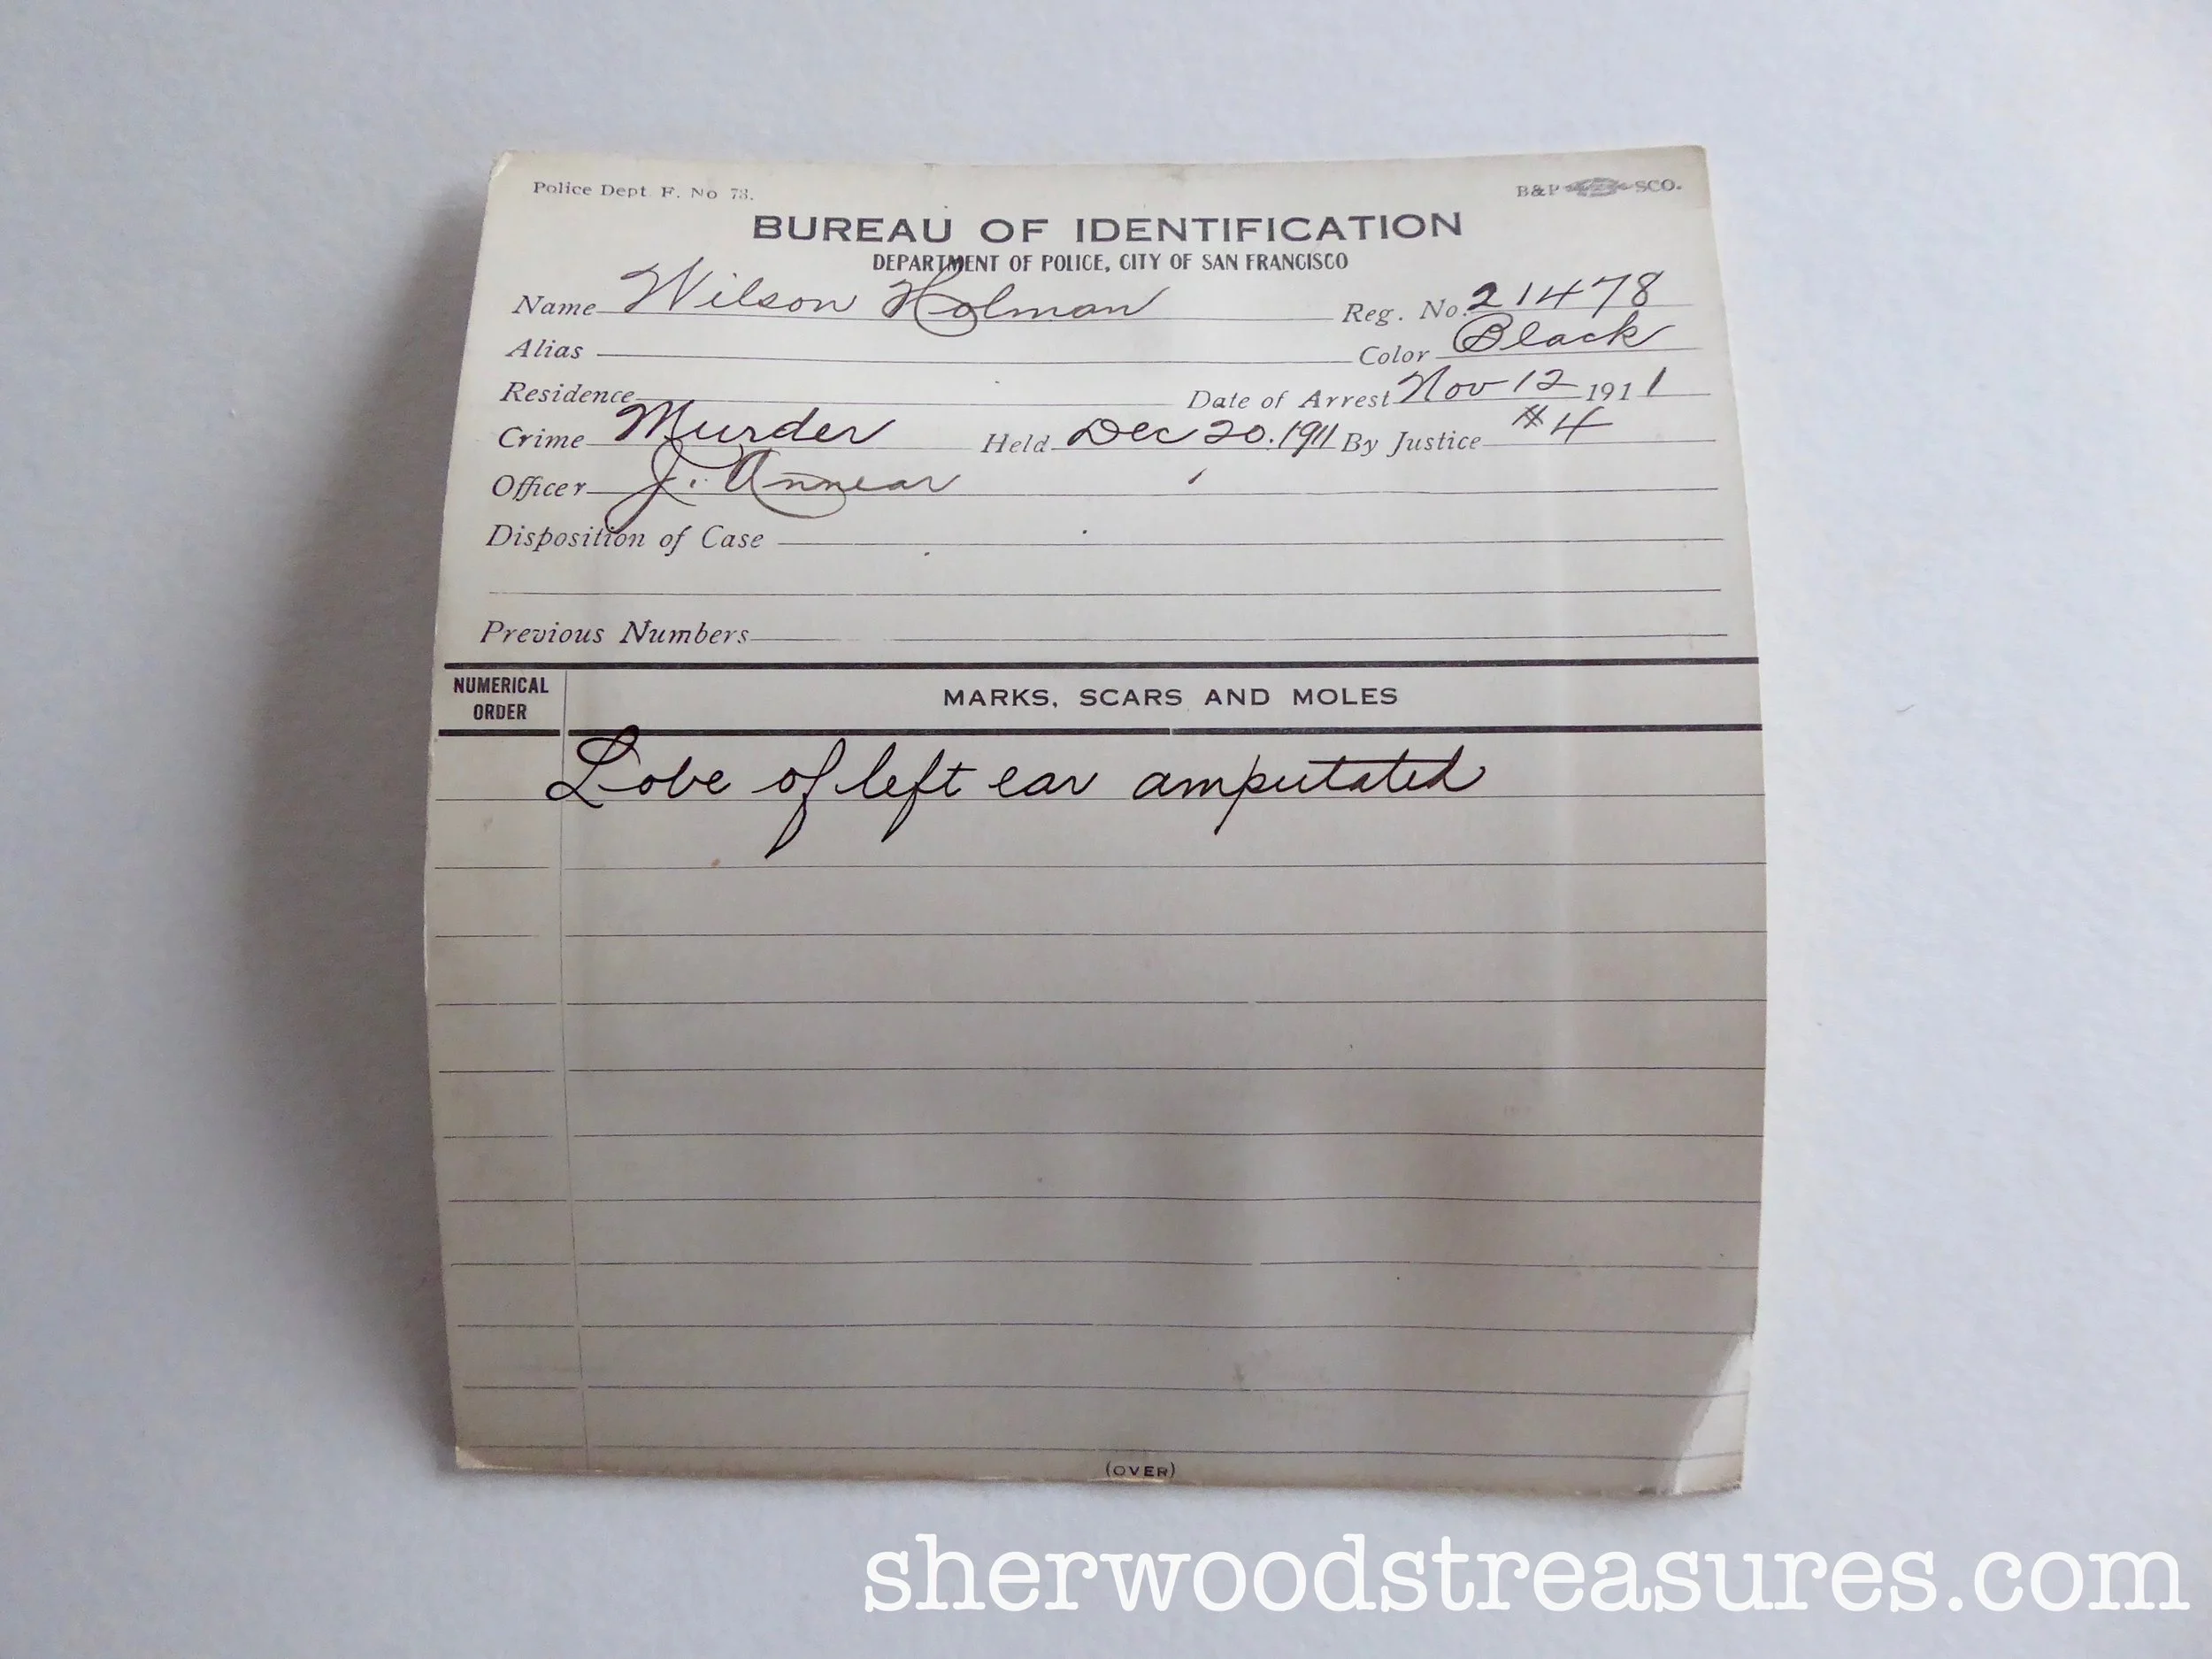 Police Dept. F. No 73.
B&P SCO.
BUREAU OF IDENTIFICATION
DEPARTMENT OF POLICE, CITY OF SAN FRANCISCO
Name Wilson Holman Reg. No. 21478
Alias Color Black
Residence Date of Arrest Nov 12 1911
Crime Murder Held Dec 20. 1911 By Justice #4
Officer J. Annear
Disposition of Case
Previous Numbers
NUMERICAL ORDER MARKS, SCARS AND MOLES
Lobe of left ear amputated
(OVER)
sherwoodstreasures.com